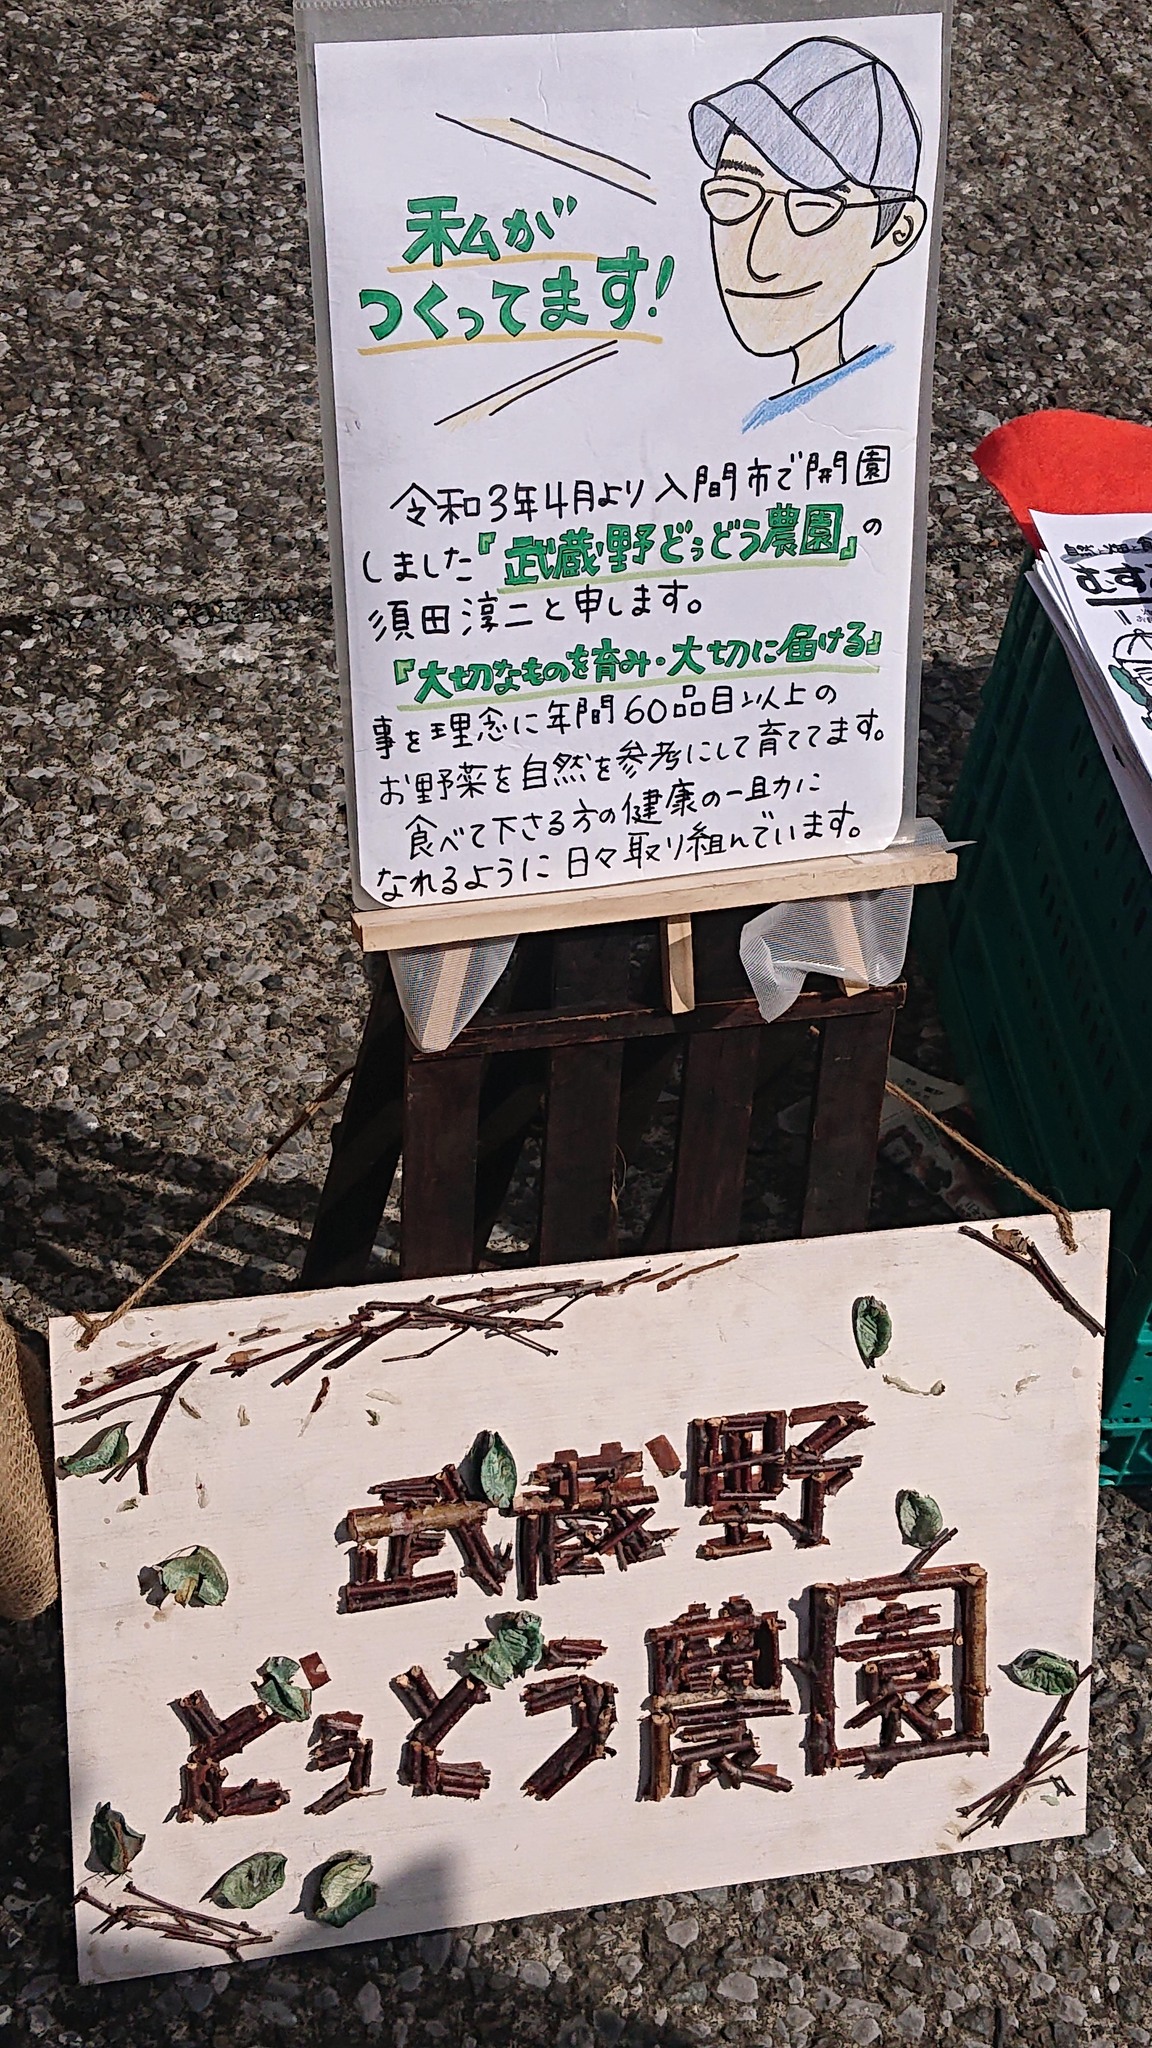 私が
つくってます!
令和3年4月より入間市で開園
しました『武蔵野どぅどう農園』の
須田淳二と申します。
『大切なものを育み・大切に届ける』
事を理念に年間60品目以上の
お野菜を自然を参考にして育ててます。
食べて下さる方の健康の一助に
なれるように日々取り組んでいます。
武蔵野
どぅどう農園